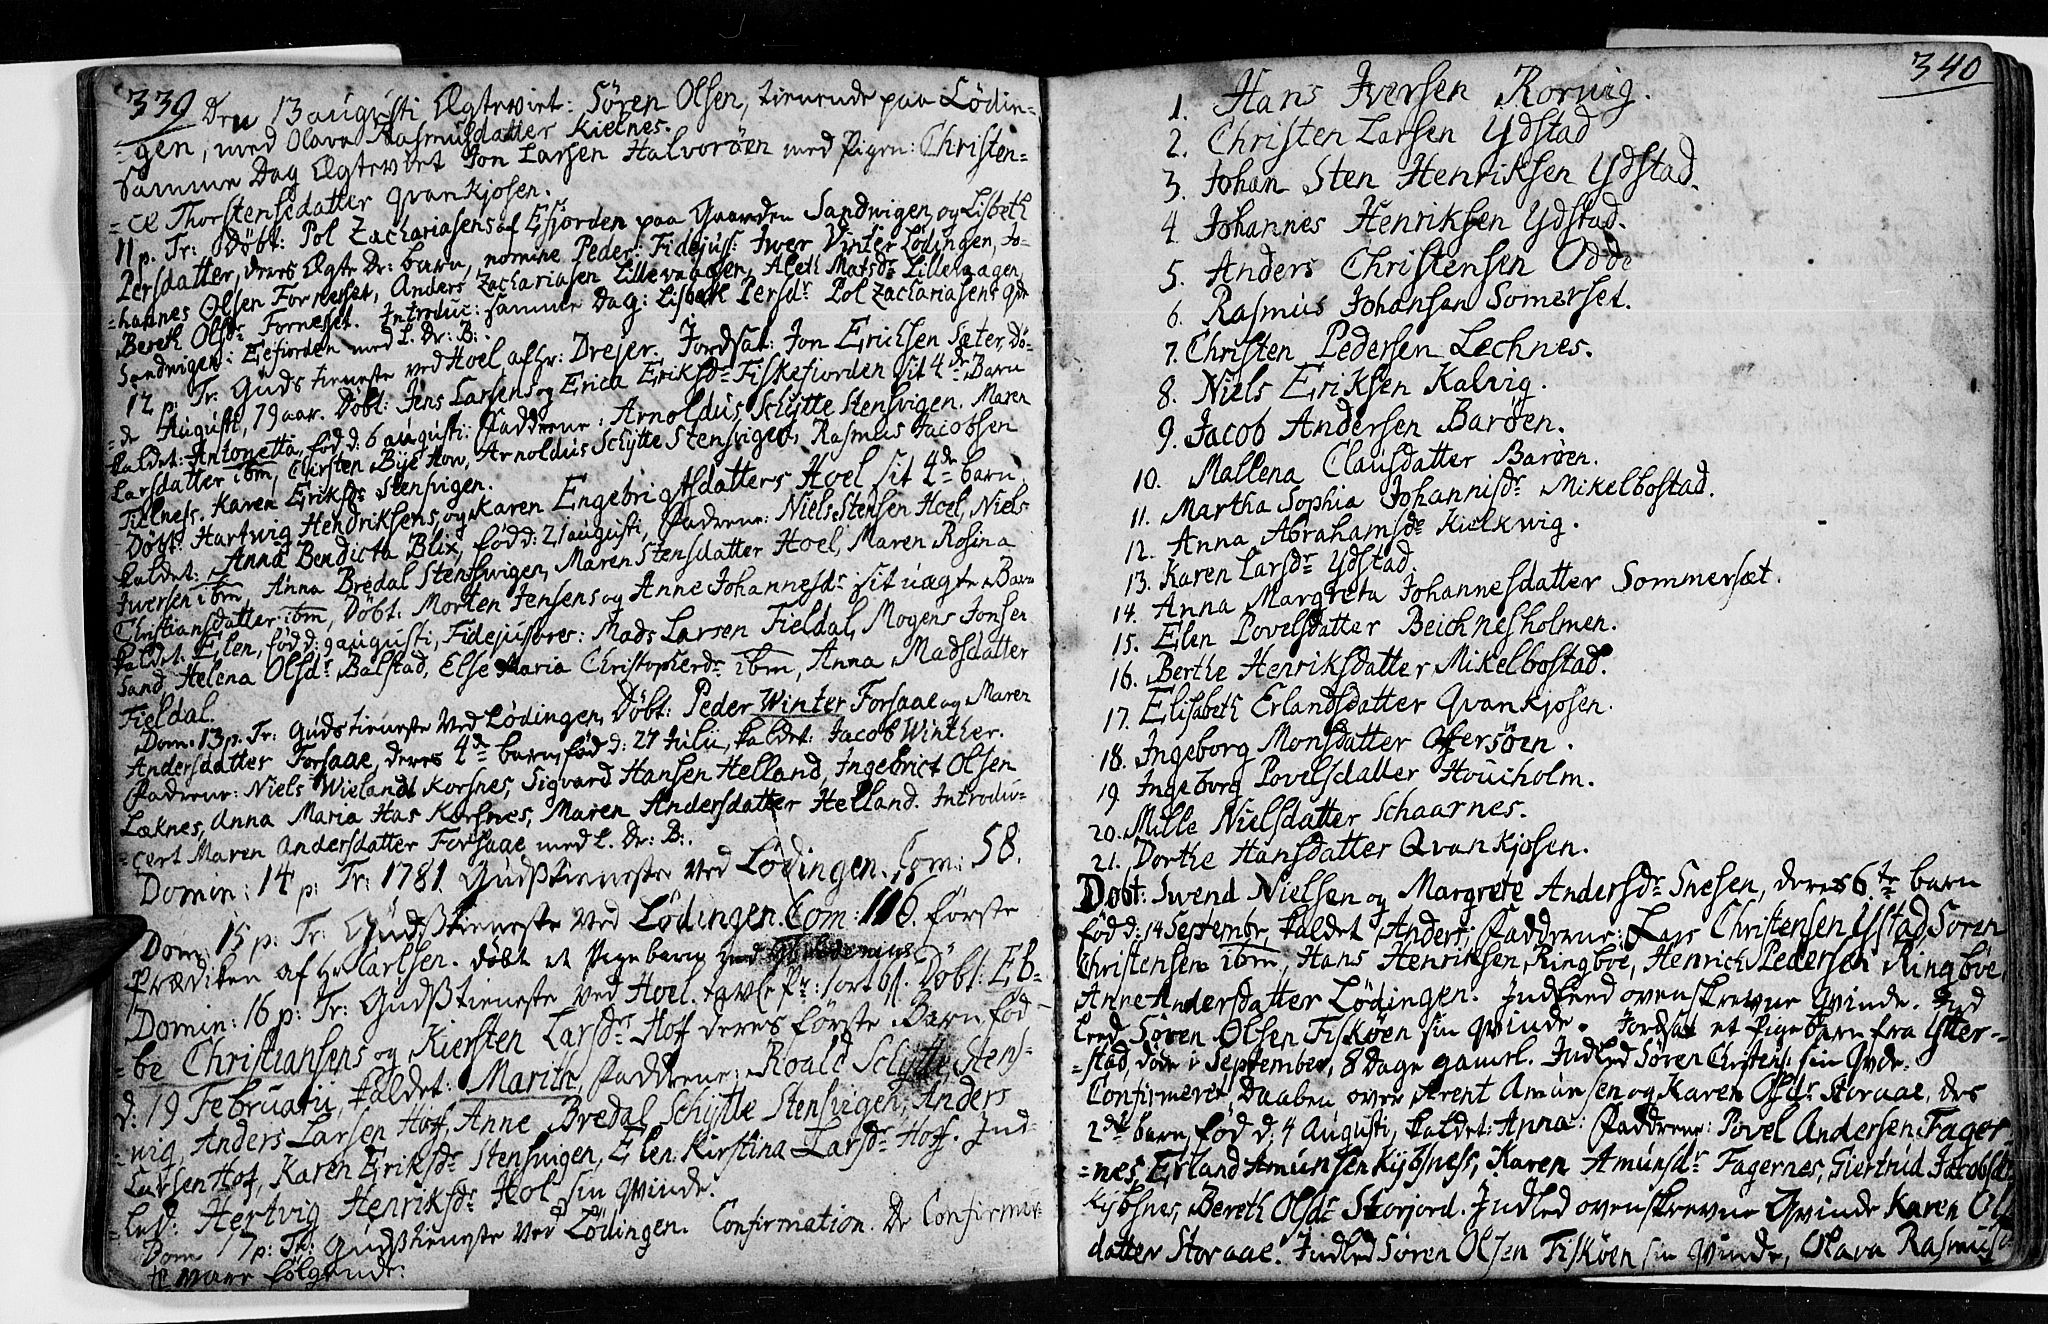 339
Den 13 augusti Ægteviet: Sören Olsen, tienende paa Lödin=
=gen, med Olava Rasmusdatter Kielnes.
Samme Dag Ægteviet Jon Larsen Halvorøen med Pigen: Christen=
=ce Thorstensedatter Qvankjosen.
11 p. Tr: Døbt: Pol Zachariasens af Efjorden paa Gaarden Sandwigen og Lisbeth
Persdatter, deres Ægte Dr: barn, nomine Peder: Fidejuss: Iwer Vinter Lödingen, Jo=
=hannes Olsen Forneset, Anders Zachariasen Lillevaagen, Aleth Matsdr Lillevaagen,
Bereth Olsdr Forneset. Introduc: samme Dag: Lisbeth Persdr Pol Zachariasens qde
Sandwigen: Eefiorden med L. Dr: B:.
12 p: Tr. Guds tieneste ved Hoel, af hr: Dreier. Jordsat: Jon Erichsen Sæter, Dö=
=de Augusti, 79 aar. Døbt: Jens Larsens og Erica Eriksdr Fiskefiorden sit 4de Barn
kaldet: Antonetta, fød d. 6 augusti: Faddrene: Arnoldus Schytte Stensvigen. Maren
Larsdatter ibm, Carsten Bye Hov, Arnoldus Schytte Stensvigen, Rasmus Jacobsen
Tielness. Karen Eriksdr Stensvigen.
Døbt: Hartwig Hendriksens og Karen Engebrigtsdatters Hoel sit 4de barn,
kaldet: Anna Bendicta Blix, fød d: 21 augusti, Faddrene: Niels Stensen Hoel, Niels
Iwersen ibm, Anna Bredal Stensvigen, Maren Stensdatter Hoel, Maren Rosina
Christiansdatter ibm, Døbt: Morten Jensens og Anne Johannesdr sit uægte Barn
kaldet: Elen, fød d: 9 augusti, Fidejussores: Mads Larsen Fieldal, Mogens Jonsen
Sand, Helena Olsdr Balstad, Else Maria Christopherdr ibm, Anna Madsdatter
Fieldal.
Dom. 13 p. Tr: Guds tieneste ved Lödingen, Døbt: Peder Winter Forsaae og Maren
Andersdatter Forsaae, deres 4de barn, fød d: 27 Julii, kaldet: Jacob Winther.
Faddrene: Niels Wielandt Korsnes, Sigvard Hansen Helland, Ingebrict Olsen
Læknes, Anna Maria Has Korsnes, Maren Andersdatter Helland. Introdu=
=cert Maren Andersdatter Forsaae med L. Dr: B:.
Domin: 14 p: Tr: 1781. Gudßtieneste ved Lödingen. Com: 58.
Dom: 15 p: Tr: Gudßtieneste ved Lödingen. Com: 116. förste
Prædiken af hr Carlsen. døbt et Pige barn
Domin: 16 p: Tr: Gudßtieneste ved Hoel. Døbt: Eb=
=be Christiansens og Kiersten Larsdr Hof deres förste Barn, fød
d: 19 Februarii, kaldet: Marith, Faddrene: Roald Schytte Stens=
=vig, Anders Larsen Hof, Anne Bredal Schytte Stensvigen, Anders
Larsen Hof, Karen Eriksdr Stensvigen, Elen Kirstina Larsdr Hof. Ind=
=led: Hertvig Henriksdr Hol sin qvinde.
Dom 17 p: Tr: Gudßtieneste ved Lödingen. Confirmation. De Confirmer=
te vare følgende:
340
1. Hans Iversen Rorvig.
2. Christen Larsen Ydstad
3. Johan Sten Henriksen Ydstad.
4. Johannes Henriksen Ydstad.
5. Anders Christensen Odde
6. Rasmus Johansen Somerset.
7. Christen Pedersen Lechnes.
8. Niels Eriksen Kalvig.
9. Jacob Andersen Barøen.
10. Mallena Clausdatter Barøen.
11. Martha Sophia Johannisdr Mikelbostad.
12. Anna Abrahamsdr Kielkwig.
13. Karen Larsdr Ydstad.
14. Anna Margreta Johannesdatter Sommersæt.
15. Elen Povelsdatter Beichnesholmen.
16. Berthe Henriksdatter Mikelbostad.
17. Elisabeth Erlandsdatter Qvankjosen.
18. Ingeborg Monsdatter Offersöen.
19 Ingeborg Povelsdatter Houcholm.
20. Mille Nielsdatter Schaarnes.
21. Dorthe Hansdatter Qvankjosen.
Døbt: Swend Nielsen og Margrete Andersdr Snesen, deres 6te barn
fød d: 14 Septembr, kaldet Anders; Faddrene: Lars Christensen Ystad, Soren
Christensen ibm, Hans Henriksen Ringböe, Henrich Pedersen Ringböe
Anne Andersdatter Lödingen. Indleed ovenskrevne Qvinde. Ind
leed Søren Olsen Fiskøen sin qvinde. Jordsat et Pigebarn fra Ytter=
=stad, døde i September, 8 Dage gamel. Indled Sören Christens: sin Qvde.
Confirmeret Daaben over Arent Amunsen og Karen Olsdr Storaae, des
2det barn, fød d: 4 Augusti, kaldet: Anna: Faddrene: Povel Andersen Fager=
=nes, Erland Amunsen Kybsness, Karen Amunsdr Fagernes, Giertrud Jacobsdr
Kybsnes, Bereth Olsdr Storjord. Indled ovenskrevne Qvinde Karen Ols
datter Storaae. Indled Søren Olsen Fiskøen sin Qvinde, Olava Rasmusd